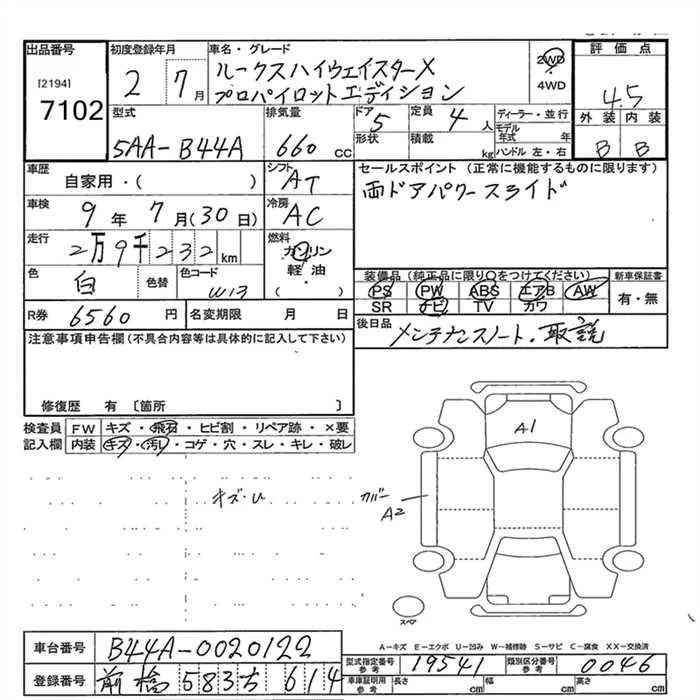 出品番号
[2194]
7102
初度登録年月
2 7月
車名・グレード
ルークスハイウェイスターX
プロパイロットエディション
2WD
・
4WD
評価点
4.5
外装 内装
B B
型式
5AA-B44A
排気量
660 cc
ドア
5
形状
定員
4 人
積載
kg
ディーラー・並行
モデル年式 年
ハンドル 左・右
車歴
自家用・( )
シフト
AT
車検
9年7月(30日)
冷房
AC
走行
2万9千232km
燃料
ガソリン
軽油
( )
色
白
色替
色コード
W13
R券
6560円
名変期限 月 日
セールスポイント (正常に機能するものに限ります)
両ドアパワースライド
装備品(純正品に限り○をつけてください)
PS PW ABS エアB AW
SR ナビ TV カワ
新車保証書
有・無
後日品
メンテナンスノート.取説
注意事項申告欄(不具合内容等は具体的に記入して下さい)
修復歴 有〔箇所 〕
検査員記入欄
FW キズ・飛石・ヒビ割・リペア跡・×要
内装 キズ・汚れ・コゲ・穴・スレ・キレ・破レ
キズ・U
A1
カバー
A2
スペア
A-キズ E-エクボ U-凹み W-補修跡 S-サビ C-腐食 XX-交換済
車台番号
B44A-0020122
登録番号
前橋 583ち 614
型式指定番号
参考
19541
類別区分番号
参考
0046
車庫証明用
参考
長さ cm
幅 cm
高さ cm